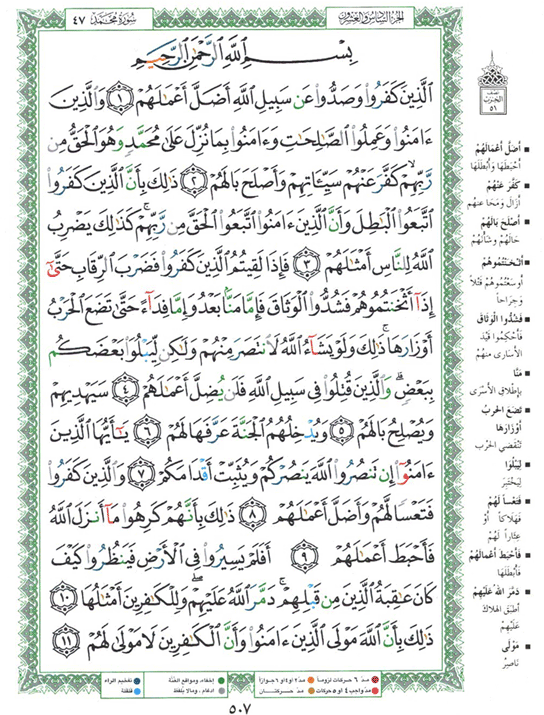 الجزء السادس والعشرون
سورة محمد ٤٧
بِسْمِ اللَّهِ الرَّحْمَٰنِ الرَّحِيمِ
الَّذِينَ كَفَرُوا وَصَدُّوا عَن سَبِيلِ اللَّهِ أَضَلَّ أَعْمَالَهُمْ ١ وَالَّذِينَ
ءَامَنُوا وَعَمِلُوا الصَّالِحَاتِ وَءَامَنُوا بِمَا نُزِّلَ عَلَىٰ مُحَمَّدٍ وَهُوَ الْحَقُّ مِن
رَّبِّهِمْ كَفَّرَ عَنْهُمْ سَيِّئَاتِهِمْ وَأَصْلَحَ بَالَهُمْ ٢ ذَٰلِكَ بِأَنَّ الَّذِينَ كَفَرُوا
اتَّبَعُوا الْبَاطِلَ وَأَنَّ الَّذِينَ ءَامَنُوا اتَّبَعُوا الْحَقَّ مِن رَّبِّهِمْ ۚ كَذَٰلِكَ يَضْرِبُ
اللَّهُ لِلنَّاسِ أَمْثَالَهُمْ ٣ فَإِذَا لَقِيتُمُ الَّذِينَ كَفَرُوا فَضَرْبَ الرِّقَابِ حَتَّىٰ
إِذَا أَثْخَنتُمُوهُمْ فَشُدُّوا الْوَثَاقَ فَإِمَّا مَنًّا بَعْدُ وَإِمَّا فِدَاءً حَتَّىٰ تَضَعَ الْحَرْبُ
أَوْزَارَهَا ۚ ذَٰلِكَ وَلَوْ يَشَاءُ اللَّهُ لَانتَصَرَ مِنْهُمْ وَلَٰكِن لِّيَبْلُوَا بَعْضَكُم
بِبَعْضٍ ۗ وَالَّذِينَ قُتِلُوا فِي سَبِيلِ اللَّهِ فَلَن يُضِلَّ أَعْمَالَهُمْ ٤ سَيَهْدِيهِمْ
وَيُصْلِحُ بَالَهُمْ ٥ وَيُدْخِلُهُمُ الْجَنَّةَ عَرَّفَهَا لَهُمْ ٦ يَا أَيُّهَا الَّذِينَ
ءَامَنُوا إِن تَنصُرُوا اللَّهَ يَنصُرْكُمْ وَيُثَبِّتْ أَقْدَامَكُمْ ٧ وَالَّذِينَ كَفَرُوا
فَتَعْسًا لَّهُمْ وَأَضَلَّ أَعْمَالَهُمْ ٨ ذَٰلِكَ بِأَنَّهُمْ كَرِهُوا مَا أَنزَلَ اللَّهُ
فَأَحْبَطَ أَعْمَالَهُمْ ٩ أَفَلَمْ يَسِيرُوا فِي الْأَرْضِ فَيَنظُرُوا كَيْفَ
كَانَ عَاقِبَةُ الَّذِينَ مِن قَبْلِهِمْ ۚ دَمَّرَ اللَّهُ عَلَيْهِمْ ۖ وَلِلْكَافِرِينَ أَمْثَالُهَا ١٠
ذَٰلِكَ بِأَنَّ اللَّهَ مَوْلَى الَّذِينَ ءَامَنُوا وَأَنَّ الْكَافِرِينَ لَا مَوْلَىٰ لَهُمْ ١١
نصف
الحزب
٥١
أضل أعمالهم
أحبطها وأبطلها
كفّر عنهم
أزال ومحا عنهم
أصلح بالهم
حالهم وشأنهم
أثخنتموهم
أوسعتموهم قتلاً
وجراحاً
فشدّوا الوثاق
فأحكموا قيد
الأسارى منهم
منّا
بإطلاق الأسرى
تضع الحرب
أوزارها
تنقضي الحرب
ليبلوا
ليختبر
فتعساً لهم
فهلاكاً أو
عثاراً لهم
فأحبط أعمالهم
فأبطلها
دمّر الله عليهم
أطبق الهلاك
عليهم
مولى
ناصر
مدّ ٦ حركات لزوماً
مدّ ٢ أو ٤ أو ٦ جوازاً
إخفاء، ومواقع الغنّة
تفخيم الراء
مدّ واجب ٤ أو ٥ حركات
مدّ حركتان
ادغام ، وما لا يلفظ
قلقلة
٥٠٧